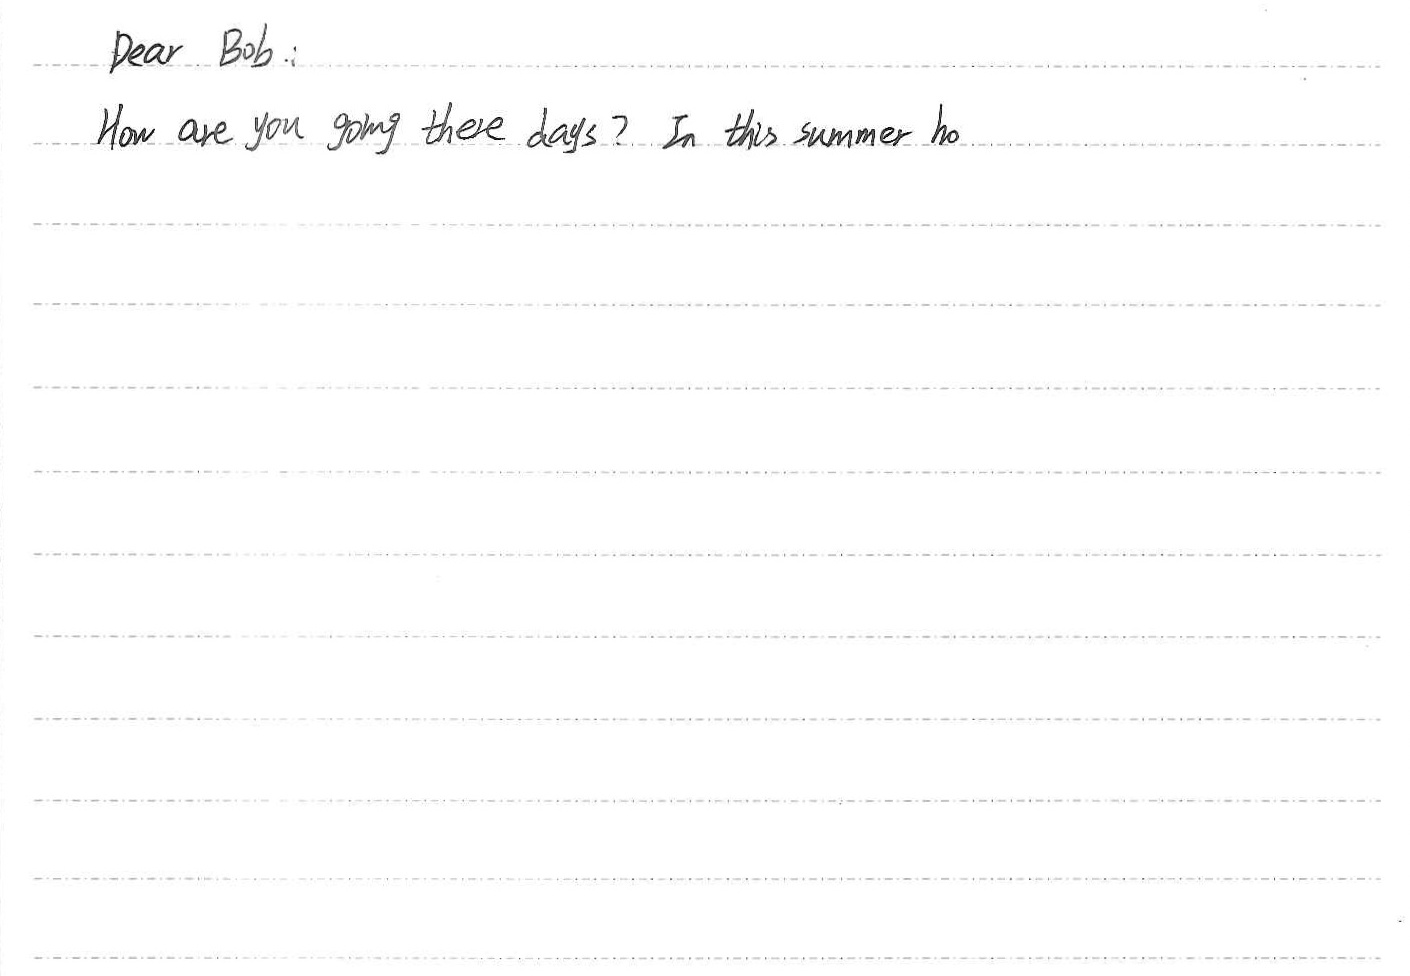 Dear Bob:
How are you going these days? In this summer ho